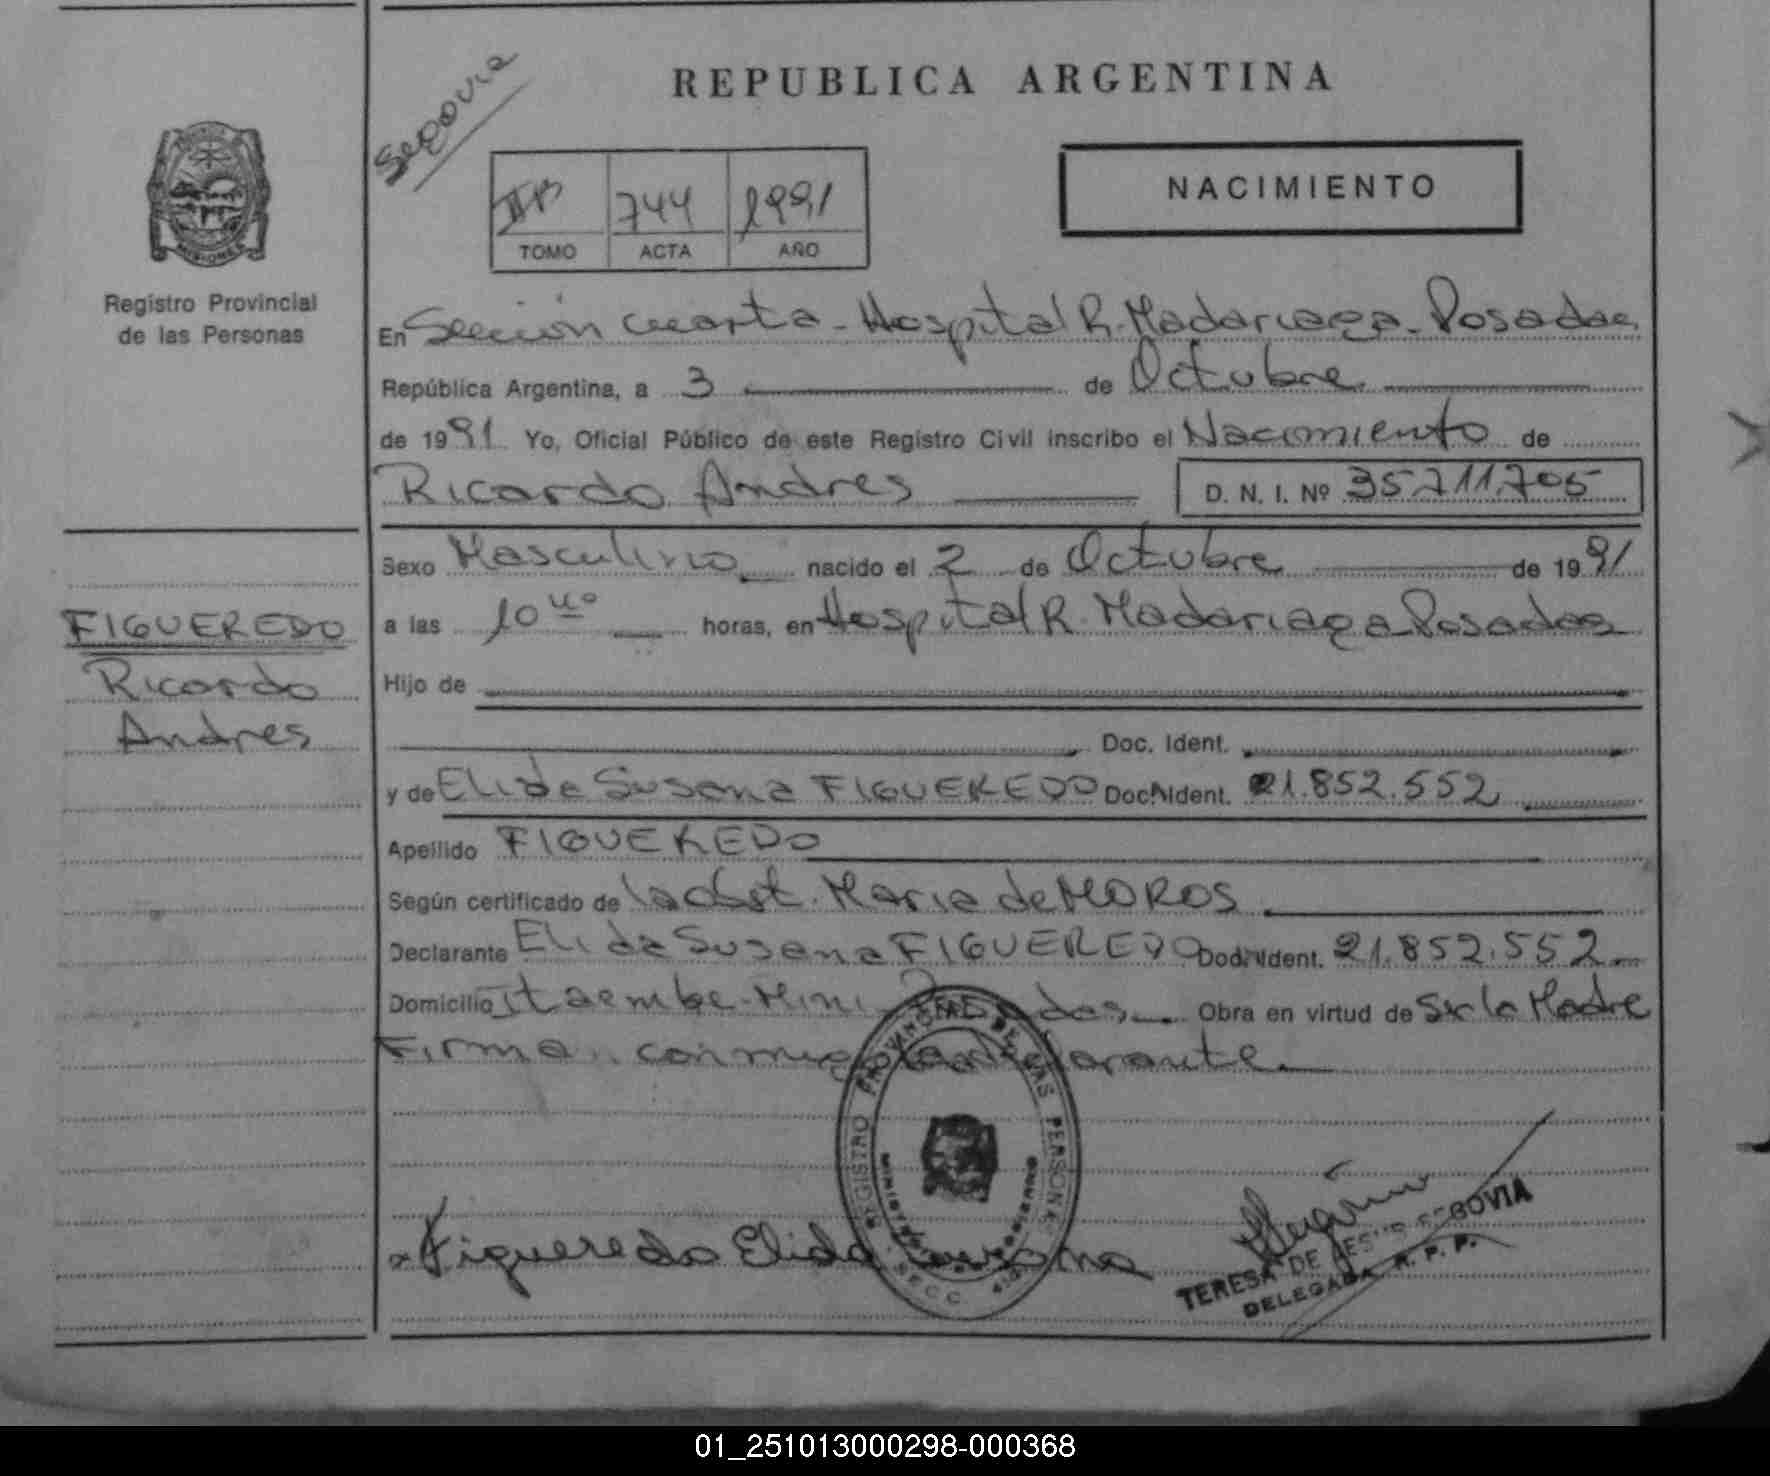 Segovia
REPUBLICA ARGENTINA
744 1991
TOMO ACTA AÑO
NACIMIENTO
MISIONES
Registro Provincial
de las Personas
En Sección cuarta - Hospital R. Madariaga - Posadas
República Argentina, a 3 de Octubre
de 1991 Yo, Oficial Público de este Registro Civil inscribo el Nacimiento de
Ricardo Andres D. N. I. Nº 35.711.705
Sexo Masculino nacido el 2 de Octubre de 1991
a las 10 horas, en Hospital R. Madariaga Posadas
Hijo de
Doc. Ident.
y de Elida Susana FIGUEREDO Doc. Ident. 21.852.552
Apellido FIGUEREDO
Según certificado de la Obst. Maria de MOROS
Declarante Elida Susana FIGUEREDO Doc. Ident. 21.852.552
Domicilio Itaembe-Mini Posadas Obra en virtud de Ser la Madre
Firma conmigo la declarante
FIGUEREDO
Ricardo
Andres
REGISTRO PROVINCIAL DE LAS PERSONAS
Figueredo Elida Susana
TERESA DE JESUS SEGOVIA
DELEGADA R. P. P.
01_251013000298-000368